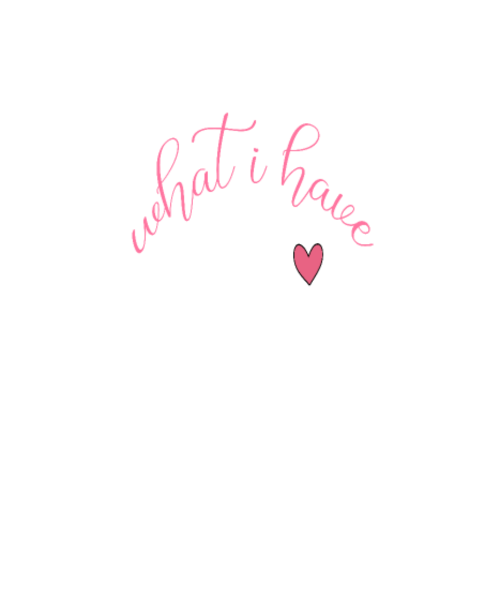 what i have